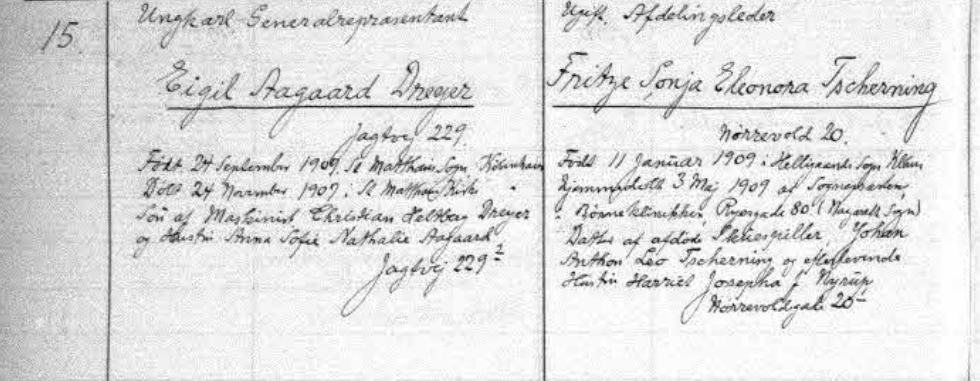 15.
Ungkarl Generalrepræsentant
Eigil Aagaard Dreyer
Jagtvej 229.
Født 24 September 1909. St Matthæus Sogn, København
Døbt 24 November 1909. i St Matthæus Kirke
Søn af Maskinist Christian Holtbag Dreyer
og Hustru Anna Sofie Nathalie Aagaard
Jagtvej 229²
Ugift. Afdelingsleder
Fritze Sonja Eleonora Tscherning
Nørrevold 20.
Født 11 Januar 1909 i Helligaands Sogn
Hjemmedøbt 3 Maj 1909 af Sognepræsten
i Børneklinikken, Ryesgade 80. (Nazareth Sogn)
Datter af afdøde Skuespiller, Johan
Anthon Leo Tscherning og efterlevende
Hustru Harriet Josepha f. Nyrup
Nørrevoldgade 20